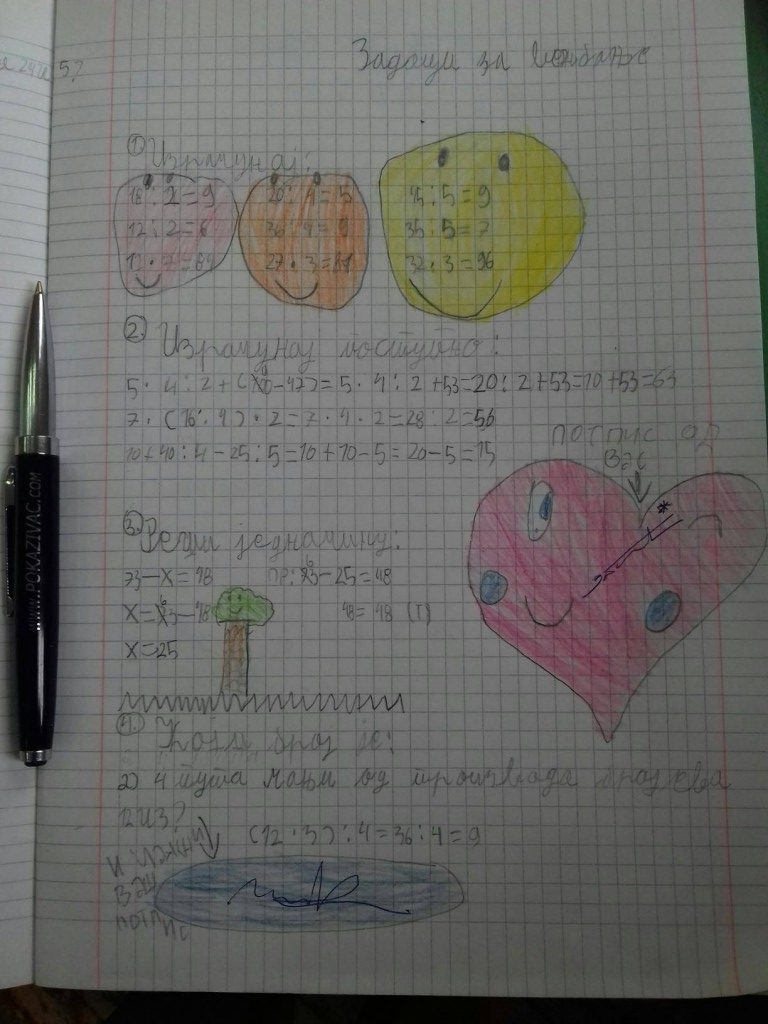 24 и 5?
Задаци за вежбање
1) Израчунај:
18 : 2 = 9 20 : 4 = 5 45 : 5 = 9
12 : 2 = 6 36 : 4 = 9 35 : 5 = 7
12 · 7 = 84 27 · 3 = 81 32 · 3 = 96
2. Израчунај поступно:
5 · 4 : 2 + ( -47) = 5 · 4 : 2 + 53 = 20 : 2 + 53 = 10 + 53 = 63
7 · (16 : 4) · 2 = 7 · 4 · 2 = 28 · 2 = 56
10 + 40 : 4 - 25 : 5 = 10 + 10 - 5 = 20 - 5 = 15
ПОТПИС ОД
ВАС
3. Реши једначину:
73 - X = 48 ПР: 73 - 25 = 48
X = 73 - 48 48 = 48 (Т)
X = 25
4. Који број је:
а) 4 пута мањи од производа бројева
12 и 3?
(12 · 3) : 4 = 36 : 4 = 9
И
ВАШ
ПОТПИС
WWW.POKAZIVAC.COM